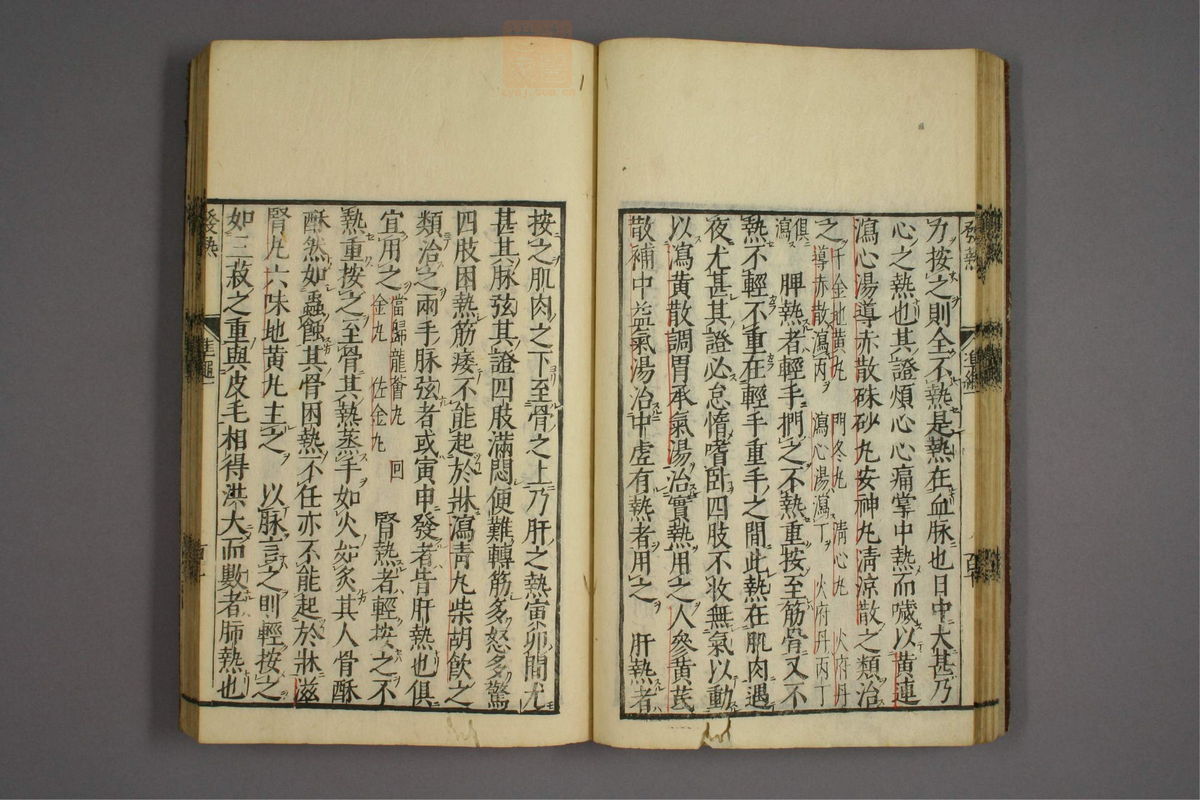 力按之則全不熱是熱在血脉也日中大甚乃
心之熱也其證煩心心痛掌中熱而噦以黄連
瀉心湯導赤散硃砂丸安神丸清涼散之類治
之千金地黄丸 門冬丸 清心丸 火府丹
導赤散瀉丙 瀉心湯瀉丁 火府丹丙丁
俱瀉 脾熱者輕手捫之不熱重按至筋骨又不
熱不輕不重在輕手重手之間此熱在肌肉遇
夜尤甚其證必怠惰嗜卧四肢不收無氣以動
以瀉黄散調胃承氣湯治實熱用之人參黄芪
散補中益氣湯治中虚有熱者用之 肝熱者
按之肌肉之下至骨之上乃肝之熱寅卯間尤
甚其脉弦其證四肢滿悶便難轉筋多怒多驚
四肢困熱筋痿不能起於牀瀉青丸柴胡飲之
類治之兩手脉弦者或寅申發者皆肝熱也俱
宜用之當歸龍薈丸 回
金丸 佐金丸
腎熱者輕按之不
熱重按之至骨其熱蒸手如火如炙其人骨酥
酥然如蟲蝕其骨困熱不任亦不能起於牀滋
腎丸六味地黄丸主之 以脉言之則輕按之
如三菽之重與皮毛相得洪大而數者肺熱也
發熱